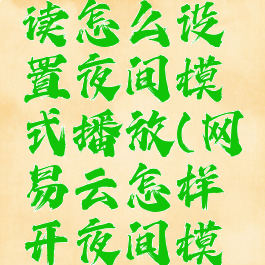 读怎么设
置夜间模
式播放(网
易云怎样
开夜间模